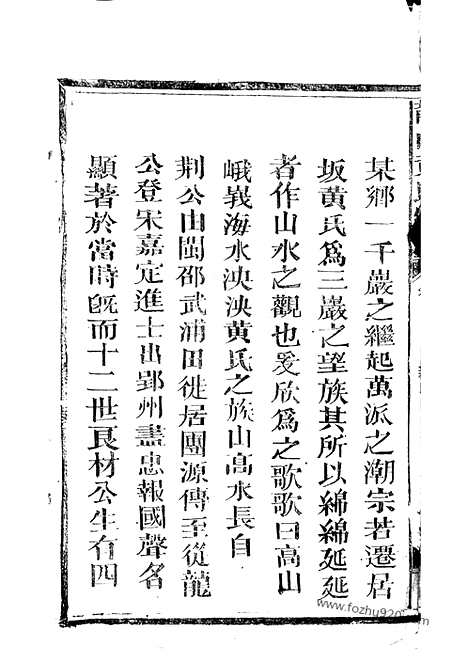 某鄉一千巖之繼起萬派之潮宗若遷居
坂黃氏爲三巖之望族其所以綿綿延延
者作山水之觀也爰欣爲之歌歌曰高山
峨峩海水泱泱黃氏之族山高水長自
荆公由閩邵武浦田徙居團源傳至從龍
公登宋嘉定進士出鄞州盡忠報國聲名
顯著於當時旣而十二世良材公生有四
www.fozhu920.com